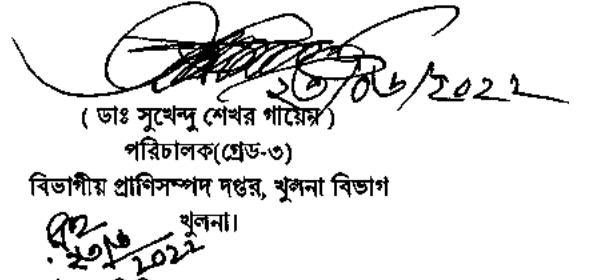 ২৩/০৬/2022
( ডাঃ সুখেন্দু শেখর গায়েন )
পরিচালক(গ্রেড-৩)
বিভাগীয় প্রাণিসম্পদ দপ্তর, খুলনা বিভাগ
খুলনা।
২৩/৬/2022